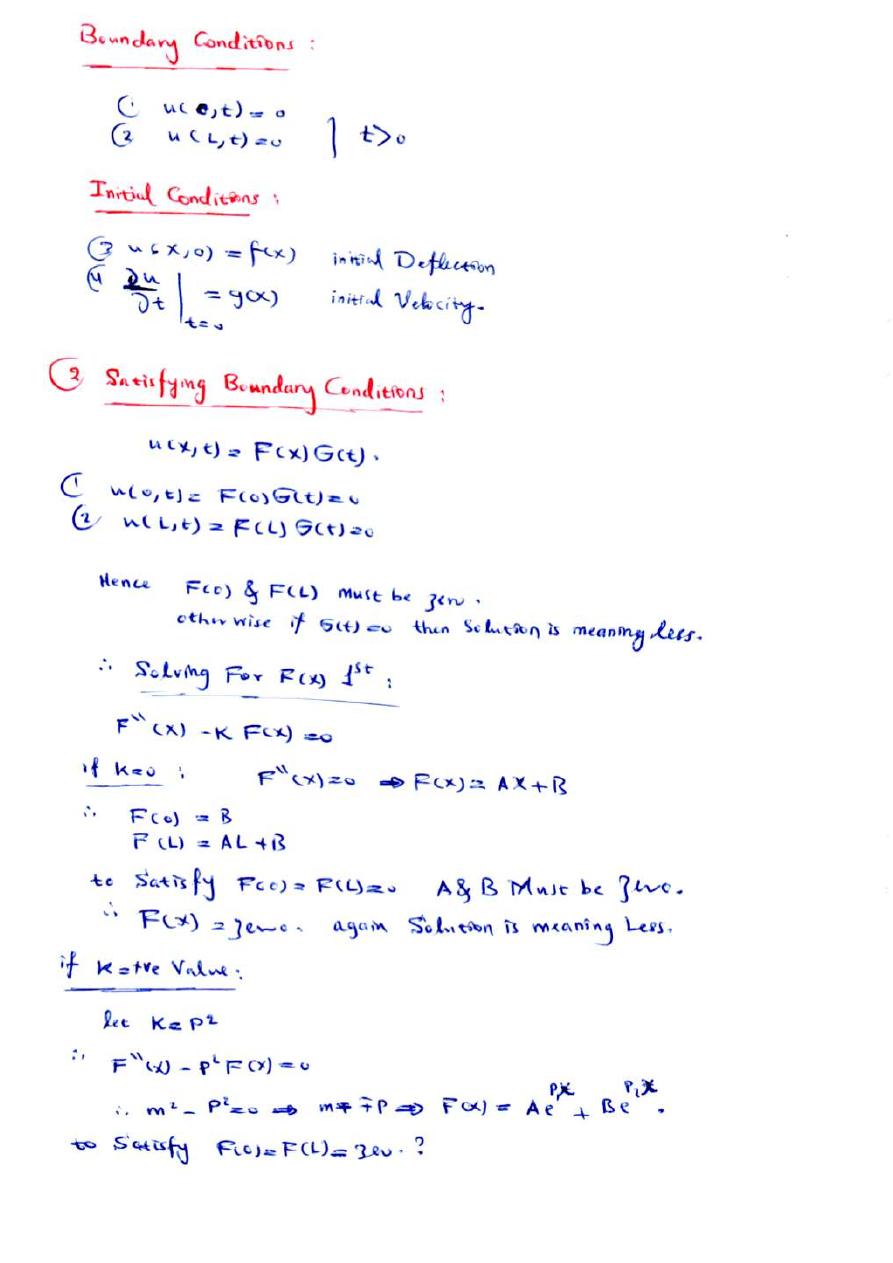 Boundary Conditions :
① u(0,t) = 0
② u(L,t) = 0 | t>0
Initial Conditions :
③ u(x,0) = f(x) initial Deflection
④ ∂u/∂t |t=0 = g(x) initial Velocity.
② Satisfying Boundary Conditions :
u(x,t) = F(x)G(t).
① u(0,t) = F(0)G(t) = 0
② u(L,t) = F(L) G(t) = 0
Hence F(0) & F(L) Must be zero.
otherwise if G(t) = 0 then Solution is meaning less.
∴ Solving For F(x) 1st :
F''(x) - K F(x) = 0
if K=0 : F''(x) = 0 ⇒ F(x) = AX+B
∴ F(0) = B
F(L) = AL+B
to Satisfy F(0) = F(L) = 0 A & B Must be Zero.
∴ F(x) = zero. again Solution is meaning Less.
if K=+ve Value :
let K = P²
∴ F''(x) - P² F(x) = 0
∴ m² - P² = 0 ⇒ m = ∓P ⇒ F(x) = Ae + Be .
to Satisfy F(0) = F(L) = Zero. ?